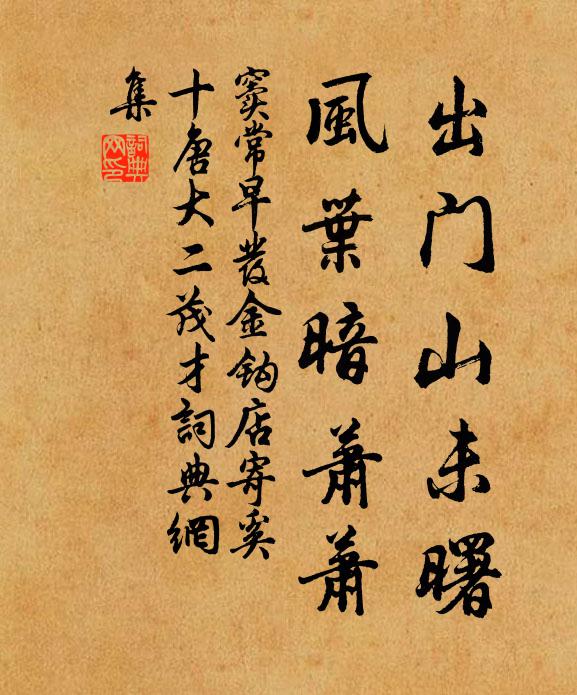 出门山未曙
風葉暗蕭蕭
竇常早發金鈎店寄奚
十唐大二茂才詞典網
集
詞典網印